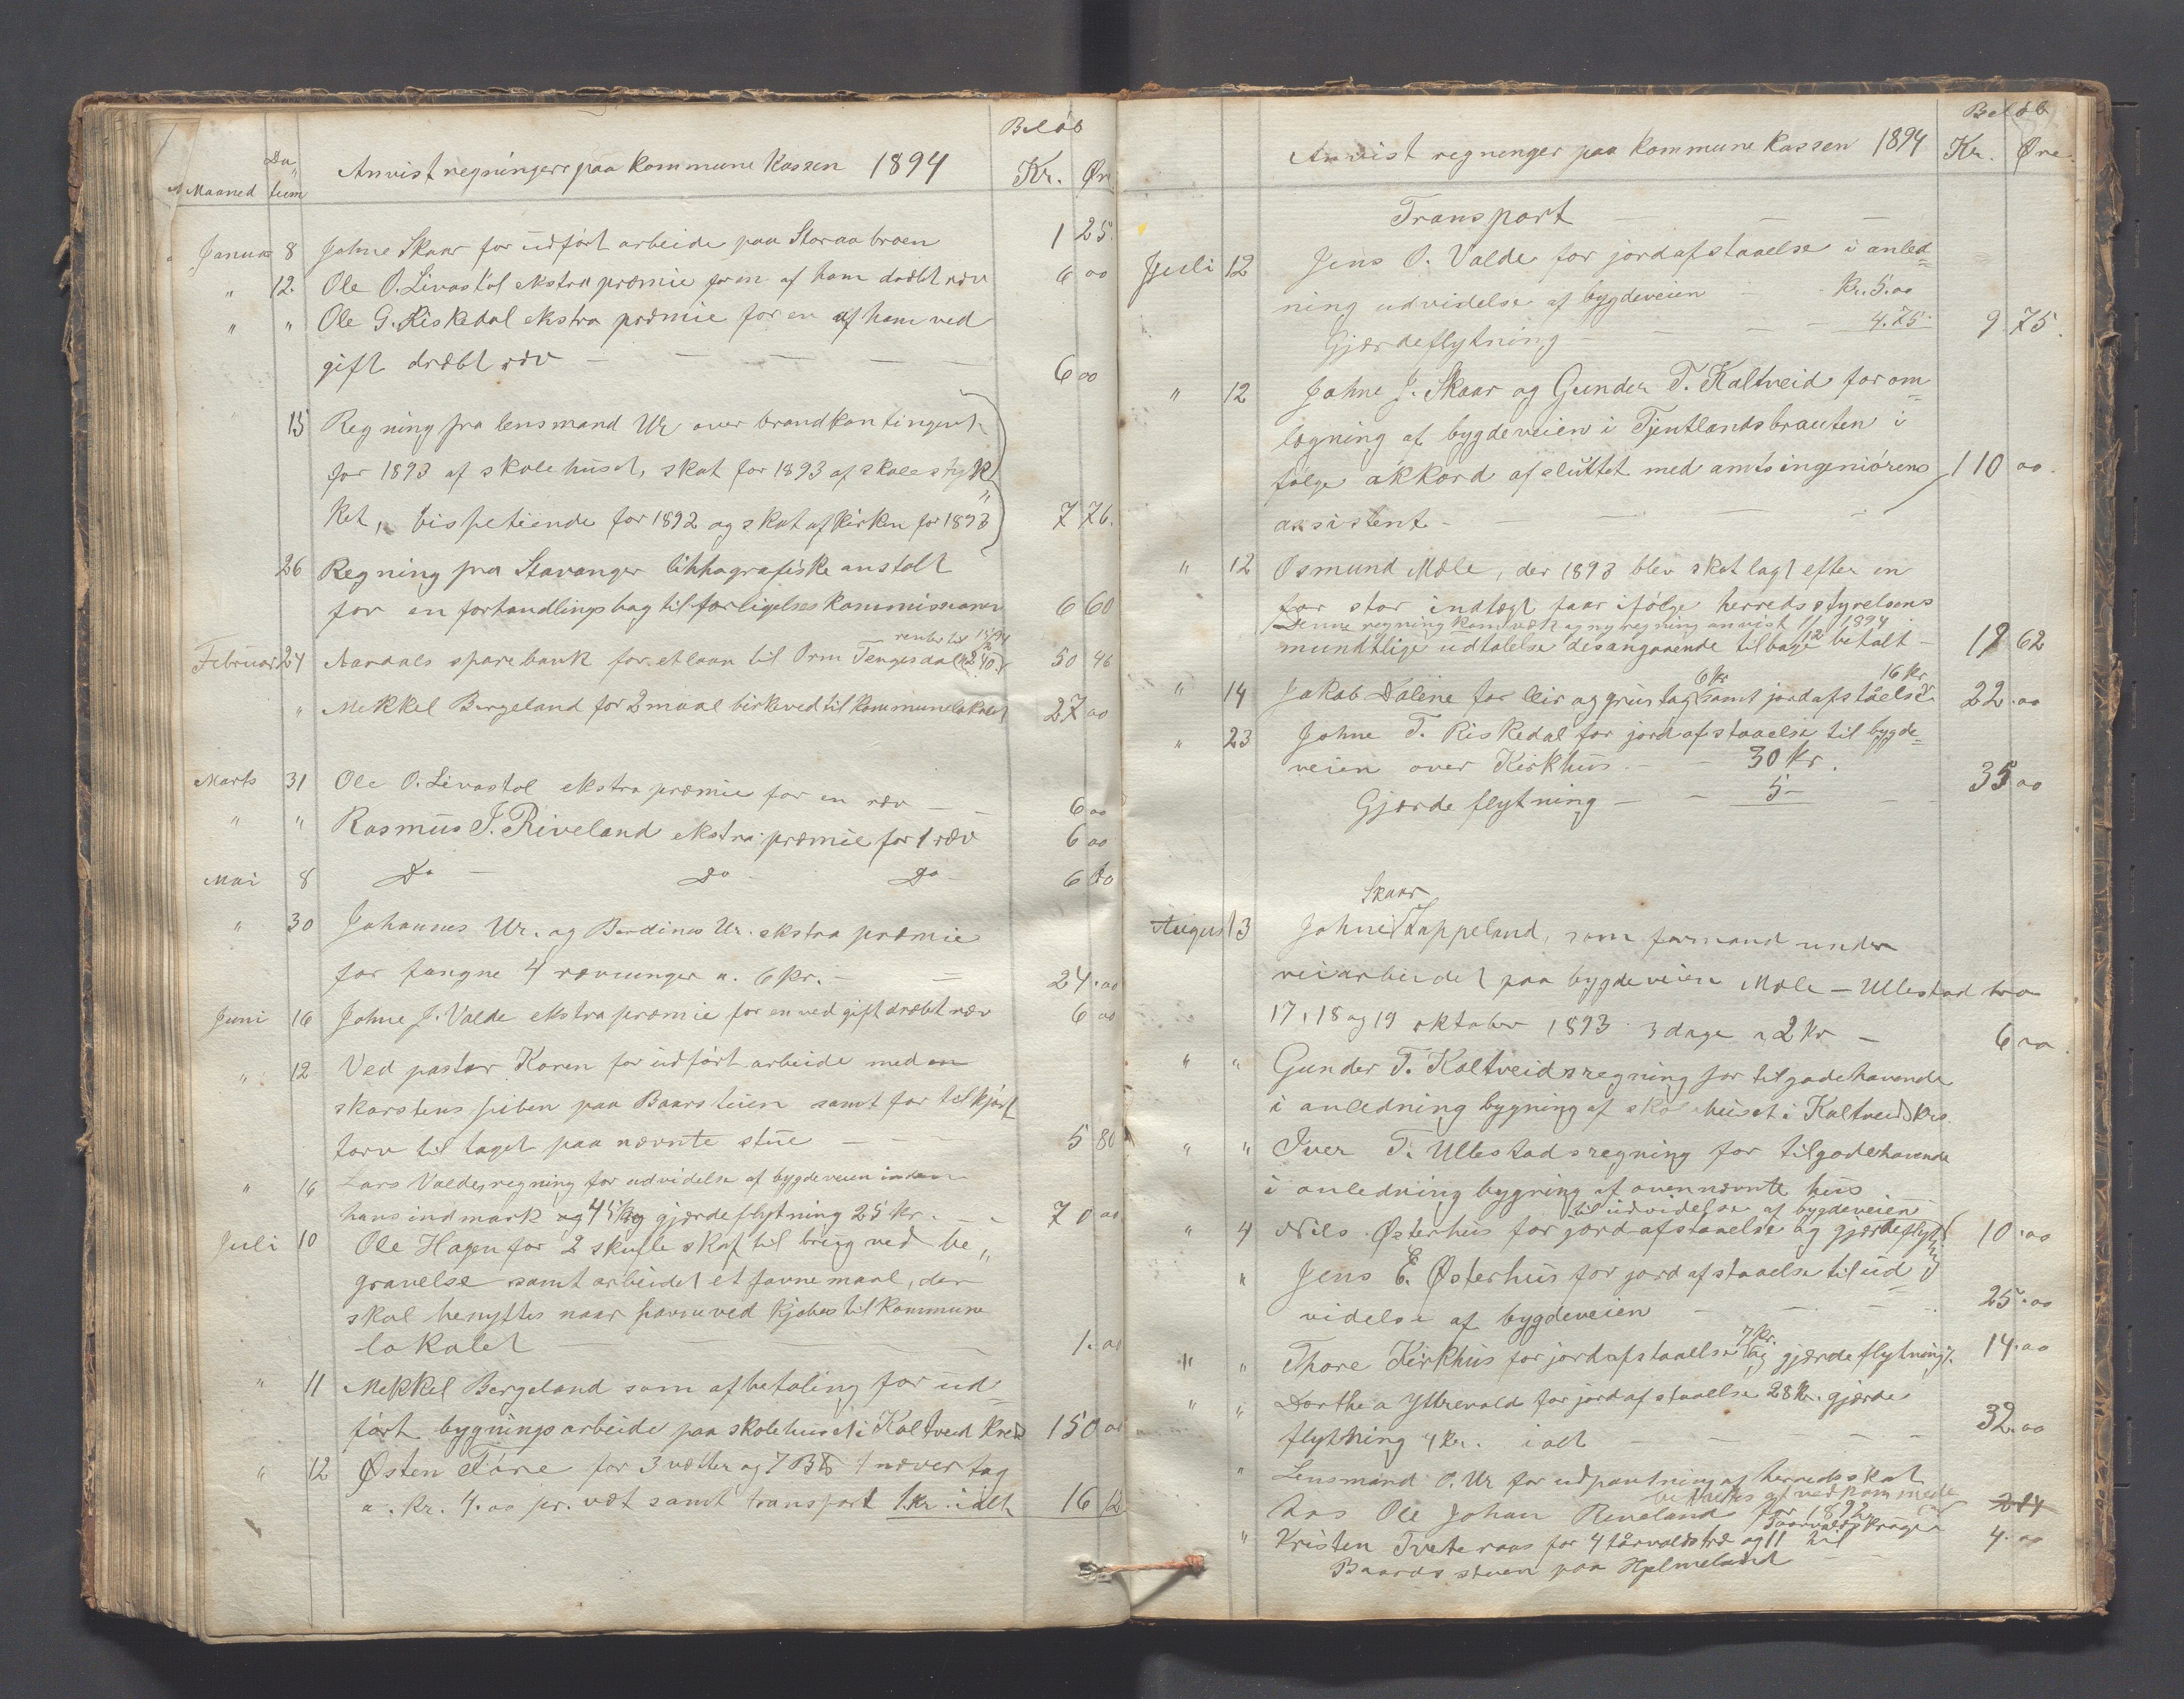 Beløb
Da
Maaned tum Anvist regninger paa kommune Kassen 1894 Kr. Øre
Januar 8 Johne Skaar for udført arbeide paa Storaabroen 1 25.
" 12. Ole O. Livastøl ekstra præmie for en af ham dræbt ræv 6 00
" " Ole G. Riskedal ekstra præmie for en af ham ved
gift dræbt ræv — — — — 6 00
15 Regning fra lensmand Ur over brandkontingent
for 1893 af skolehuset, skat for 1893 af skolestyk
ket, bispetiende for 1892 og skat af kirken for 1893 7 76.
26 Regning fra Stavanger lithografiske anstalt
for en forhandlingsbog til forligelseskommissionen 6 60
renter til
Februar 24 Aardals sparebank for et laan til Orm Tengesdal 50 46
" Mekkel Bergeland for 2 maal birkeved til kommunelokalet 27 00
Marts 31 Ole O. Livastøl ekstra præmie for en ræv — — 6 00
" " Rasmus T. Riveland ekstra præmie for 1 ræv 6 00
Mai 8 Do — Do Do 6 00
" 30 Johannes Ur. og Berdines Ur. ekstra præmie
for fangne 4 rævunger a. 6 kr. — = 24.00
Juni 16 Johne J. Valde ekstra præmie for en ved gift dræbt ræv 6 00
" 12 Ved pastor Koren for udført arbeide med en
skorstens piben paa Baarstuen samt for tilkjørt
torv til taget paa nævnte stue — — — 5 80
" 16 Lars Valdes regning for udvidelse af bygdeveien inden
hans indmark og 45 kr gjærdeflytning 25 kr. — — 70 00
Juli 10 Ole Hagen for 2 skufle skaf til brug ved be„
gravelse samt arbeidet et favnemaal, der
skal benyttes naar favneved kjøbes til kommune
lokalet — — — 1.00
" 11 Mekkel Bergeland som afbetaling for ud=
ført bygningsarbeide paa skolehuset i Kaltveid kreds 150 00
" 12 Østen Føre for 3 vætter og 7 næver tag
a. kr. 4.00 pr. væt samt transport 1 kr. ialt 16 12
Beløb
Anvist regninger paa kommune kassen 1894 Kr. Øre.
Transport — — —
Juli 12 Jens O. Valde for jordafstaaelse i anled=
ning udvidelse af bygdeveien — kr. 5.00
Gjærdeflytning — — — 4.75 9.75.
" 12 Johne J. Skaar og Gunder T. Kaltveid for om=
lægning af bygdeveien i Tjentlandsbrauten i
følge akkord afsluttet med amtsingeniørens 110 00.
assistent — — — —
" 12 Osmund Mæle, der 1893 blev skatlagt efter en
for stor indtægt faar ifølge herredsstyrelsens
Denne regning kom væk og ny regning anvist 11/12 1894
mundtlige udtalelse desangaaende tilbage betalt — 12 62
6 kr 16 kr
" 14 Jakob Dalene for leir og grustag samt jordafståelse 22.00
" 23 Johne T. Riskedal for jordafstaaelse til bygde=
veien over Kirkhus — — 30 kr.
Gjærdeflytning — — 5 — — 35 00
Skaar
August 3 Johne Tappeland, som formand under
veiarbeidet paa bygdeveien Mæle — Ullestad
17, 18 og 19 oktober 1893. 3 dage a 2 kr — 6 00
" " Gunder T. Kaltveids regning for tilgodehavende
i anledning bygning af skolehuset i Kaltveid krs.
" " Iver T. Ullestads regning for tilgodehavende
i anledning bygning af ovennævnte hus
til udvidelse af bygdeveien
" 4 Nils Østerhus for jordafstaaelse og gjærdeflyt 10.00
" Jens E. Østerhus for jordafstaaelse til ud
videlse af bygdeveien — — — 25.00
7 kr.
" " Thore Kirkhus for jordafstaaelse og gjærdeflytning 14.00
" " Dorthea Yttrevold for jordafstaaelse 28 kr. gjærde
flytning 4 kr. ialt — — — — 32.00
" Lensmand O. Ur for udpantning af herredsskat
hos Ole Johan Riveland for 1892
" Kristen Tveteraas for 4 og 11 til 4.00
Baards stuen paa Hjelmeland — —